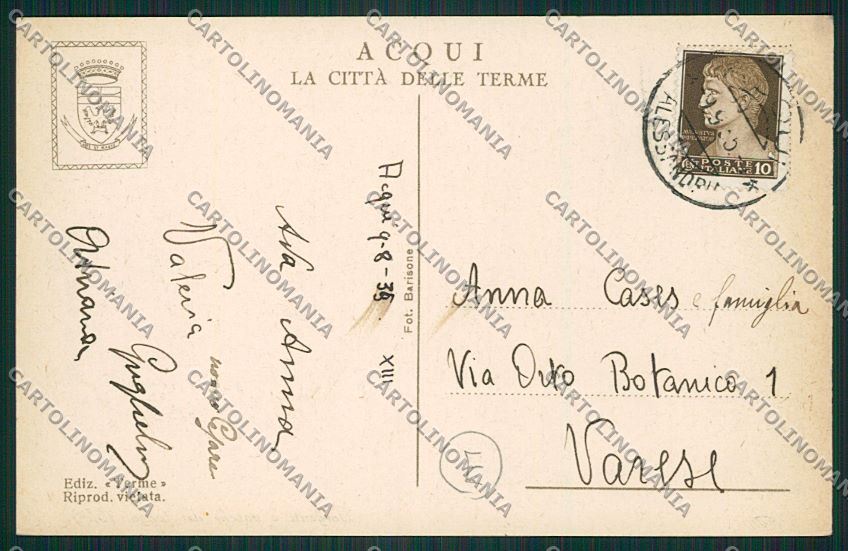 ACQUI
LA CITTÀ DELLE TERME
Acqui 9-8-35 XIII
Ava Anna
Valeria
nonno
Guglielmo
Adriana
Fot. Barisone
Anna Cases e famiglia
Via Orto Botanico 1
Varese
Ediz. «Terme»
Riprod. vietata.
POSTE
ITALIANE 10
ALESSANDRIA
CARTOLINOMANIA